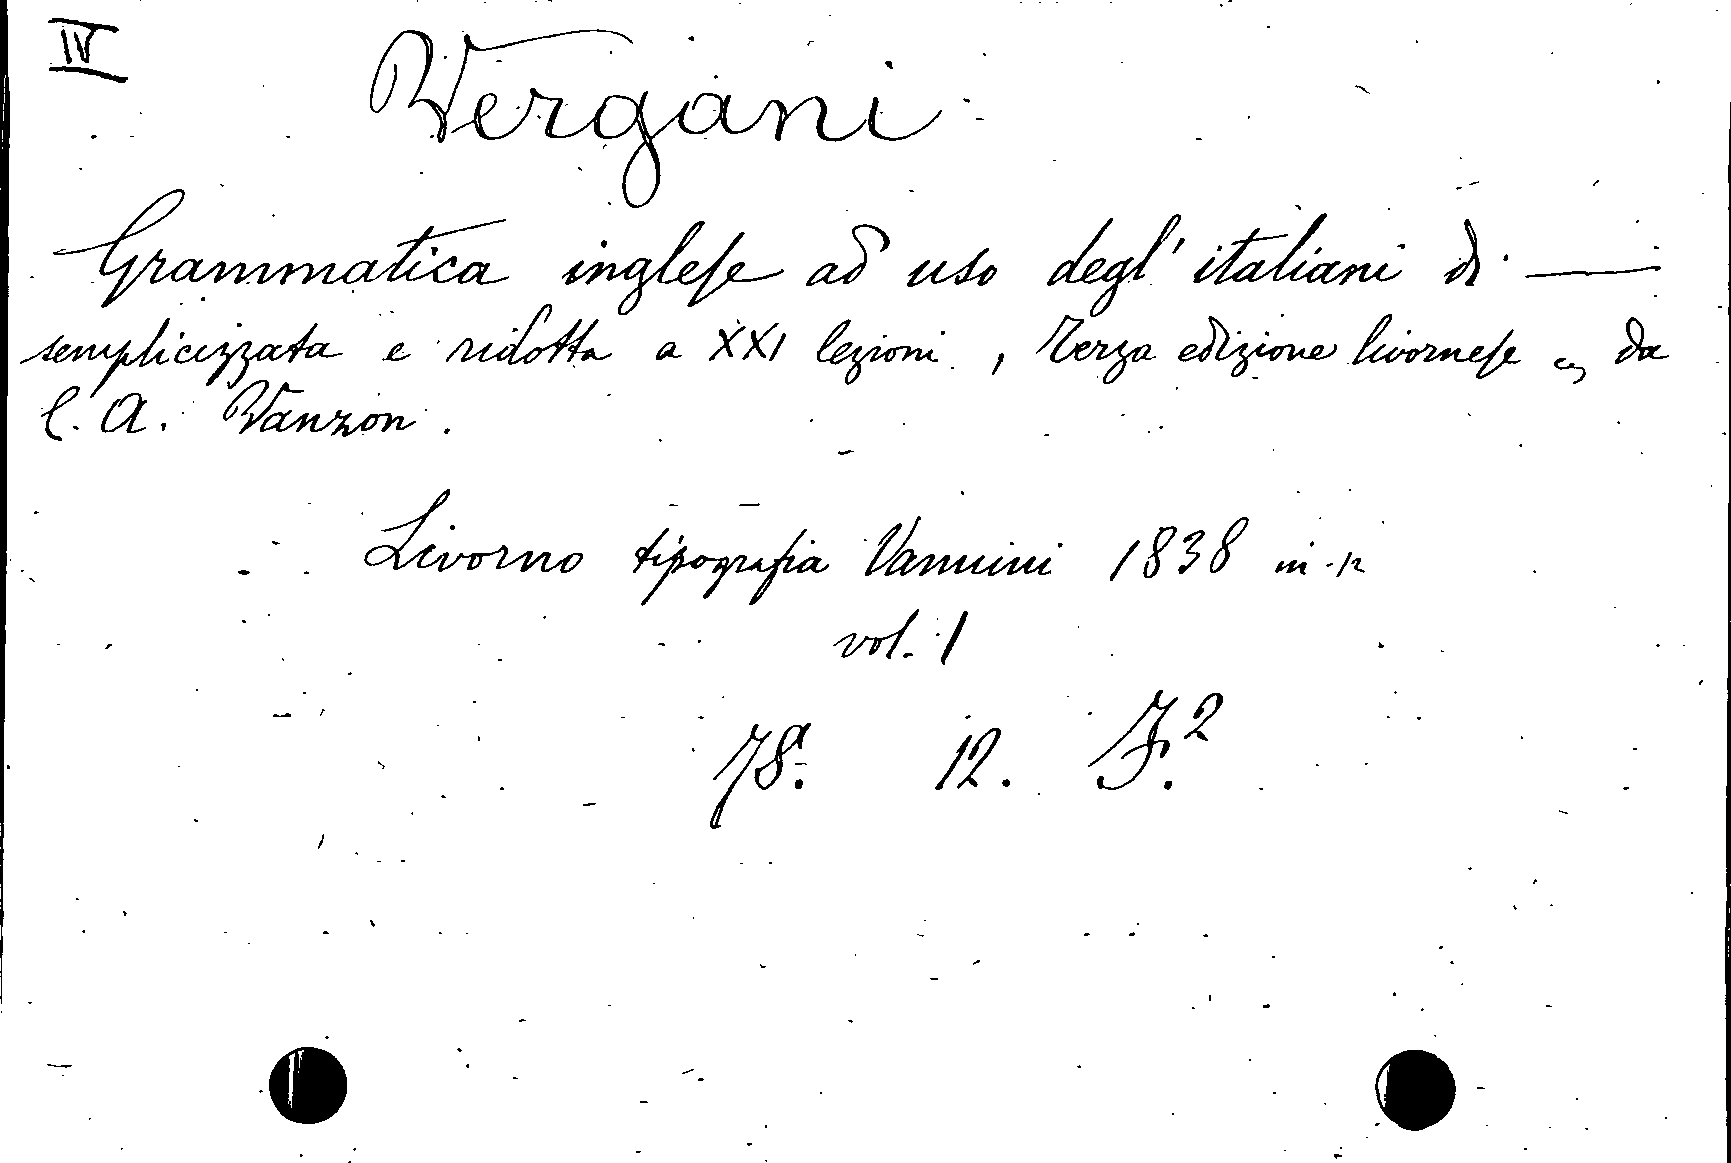 IV
Vergani
Grammatica inglese ad uso degl' italiani di ——
semplicizzata e ridotta a XXI lezioni, terza edizione livornese da
C. A. Vanzon.
Livorno tipografia Vannini 1838 in-12
vol. 1
78ª. 12. F.²